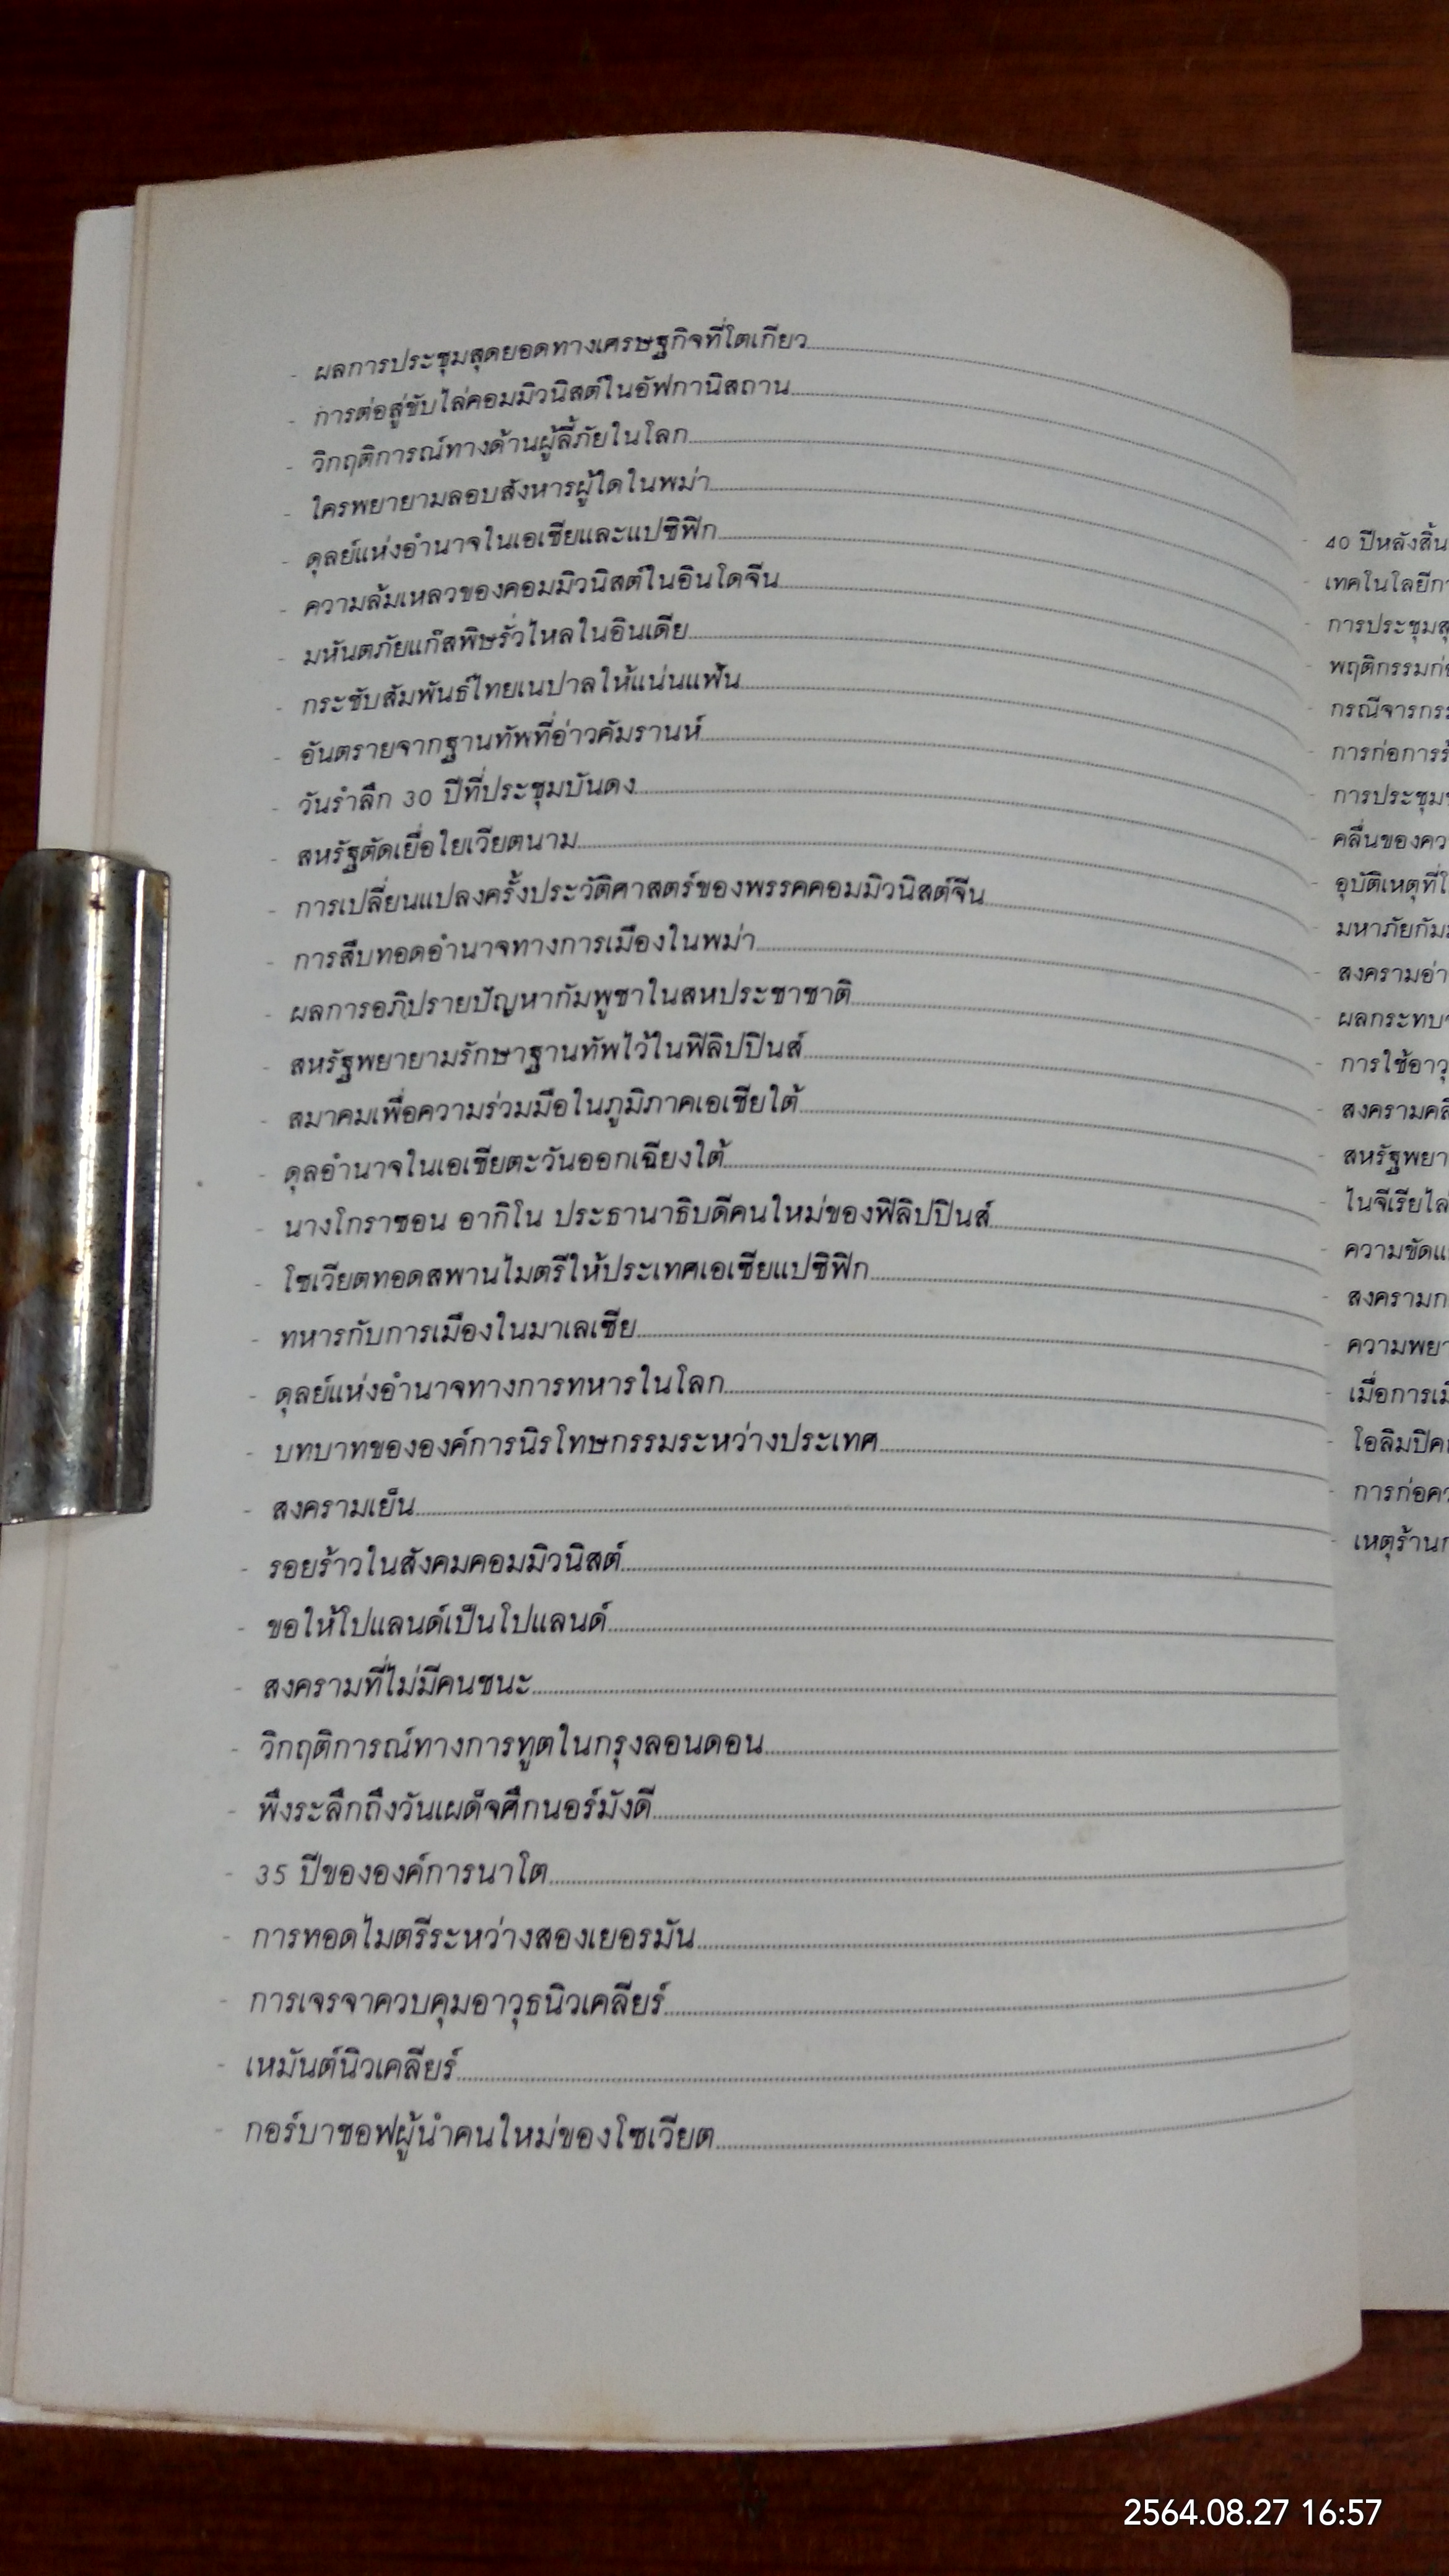 - ผลการประชุมสุดยอดทางเศรษฐกิจที่โตเกียว
- การต่อสู่ขับไล่คอมมิวนิสต์ในอัฟกานิสถาน
- วิกฤติการณ์ทางด้านผู้ลี้ภัยในโลก
- ใครพยายามลอบสังหารผู้ใดในพม่า
- ดุลย์แห่งอำนาจในเอเซียและแปซิฟิก
- ความล้มเหลวของคอมมิวนิสต์ในอินโดจีน
- มหันตภัยแก๊สพิษรั่วไหลในอินเดีย
- กระชับสัมพันธ์ไทยเนปาลให้แน่นแฟ้น
- อันตรายจากฐานทัพที่อ่าวคัมรานห์
- วันรำลึก 30 ปีที่ประชุมบันดง
- สหรัฐตัดเยื่อใยเวียตนาม
- การเปลี่ยนแปลงครั้งประวัติศาสตร์ของพรรคคอมมิวนิสต์จีน
- การสืบทอดอำนาจทางการเมืองในพม่า
- ผลการอภิปรายปัญหากัมพูชาในสหประชาชาติ
- สหรัฐพยายามรักษาฐานทัพไว้ในฟิลิปปินส์
- สมาคมเพื่อความร่วมมือในภูมิภาคเอเซียใต้
- ดุลอำนาจในเอเซียตะวันออกเฉียงใต้
- นางโกราซอน อากิโน ประธานาธิบดีคนใหม่ของฟิลิปปินส์
- โซเวียตทอดสพานไมตรีให้ประเทศเอเซียแปซิฟิก
- ทหารกับการเมืองในมาเลเซีย
- ดุลย์แห่งอำนาจทางการทหารในโลก
- บทบาทขององค์การนิรโทษกรรมระหว่างประเทศ
- สงครามเย็น
- รอยร้าวในสังคมคอมมิวนิสต์
- ขอให้โปแลนด์เป็นโปแลนด์
- สงครามที่ไม่มีคนชนะ
- วิกฤติการณ์ทางการทูตในกรุงลอนดอน
- พึงระลึกถึงวันเผด็จศึกนอร์มังดี
- 35 ปีขององค์การนาโต
- การทอดไมตรีระหว่างสองเยอรมัน
- การเจรจาควบคุมอาวุธนิวเคลียร์
- เหมันต์นิวเคลียร์
- กอร์บาชอฟผู้นำคนใหม่ของโซเวียต
- 40 ปีหลังสิ้น
- เทคโนโลยีกา
- การประชุมสุ
- พฤติกรรมก่อ
- กรณีจารกรร
- การก่อการร้
- การประชุม
- คลื่นของคว
- อุบัติเหตุที่
- มหาภัยกัม
- สงครามอ่า
- ผลกระทบ
- การใช้อาวุ
- สงครามคลื
- สหรัฐพยา
- ไนจีเรียไล
- ความขัดแ
- สงครามก
- ความพยา
- เมื่อการเมื
- โอลิมปิค
- การก่อคว
- เหตุร้าน
2564.08.27 16:57